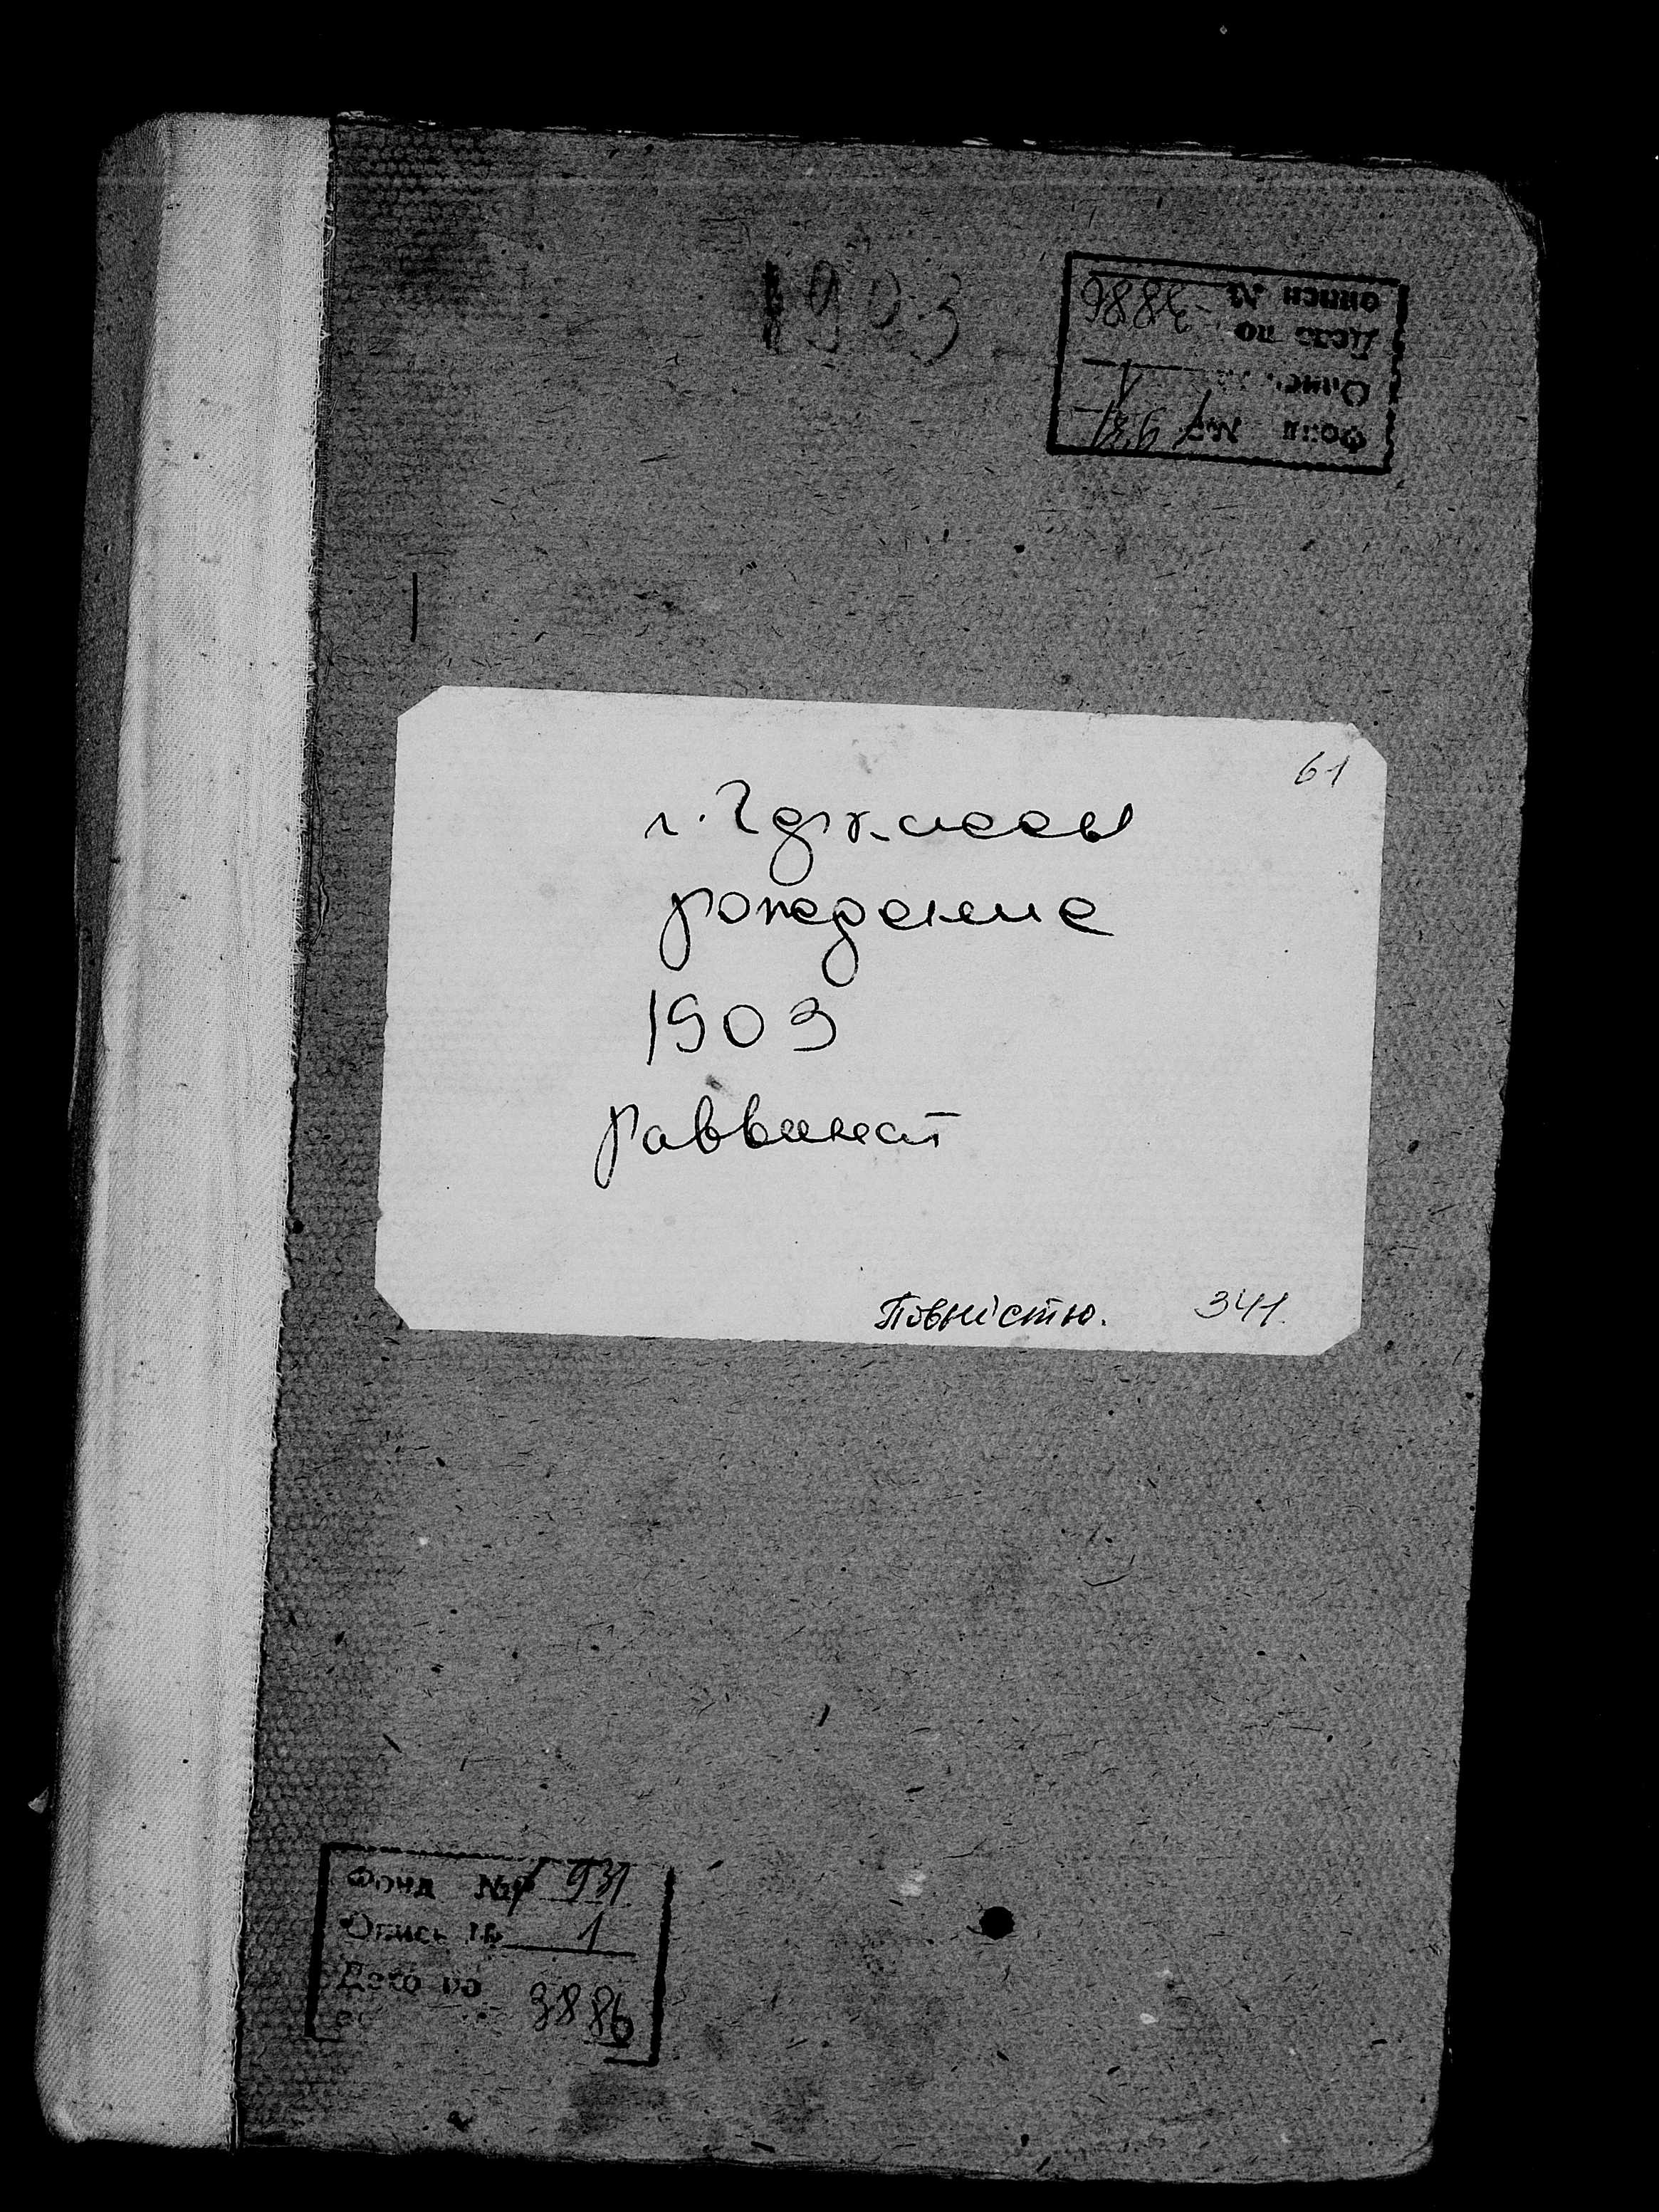 1903
описи № 3886
Дело по
Опись № 1
Фонд № Р 931
61
рождение
1903
раввинат
Повністю. 341.
Фонд № Р 931
Опись № 1
Дело по
3886